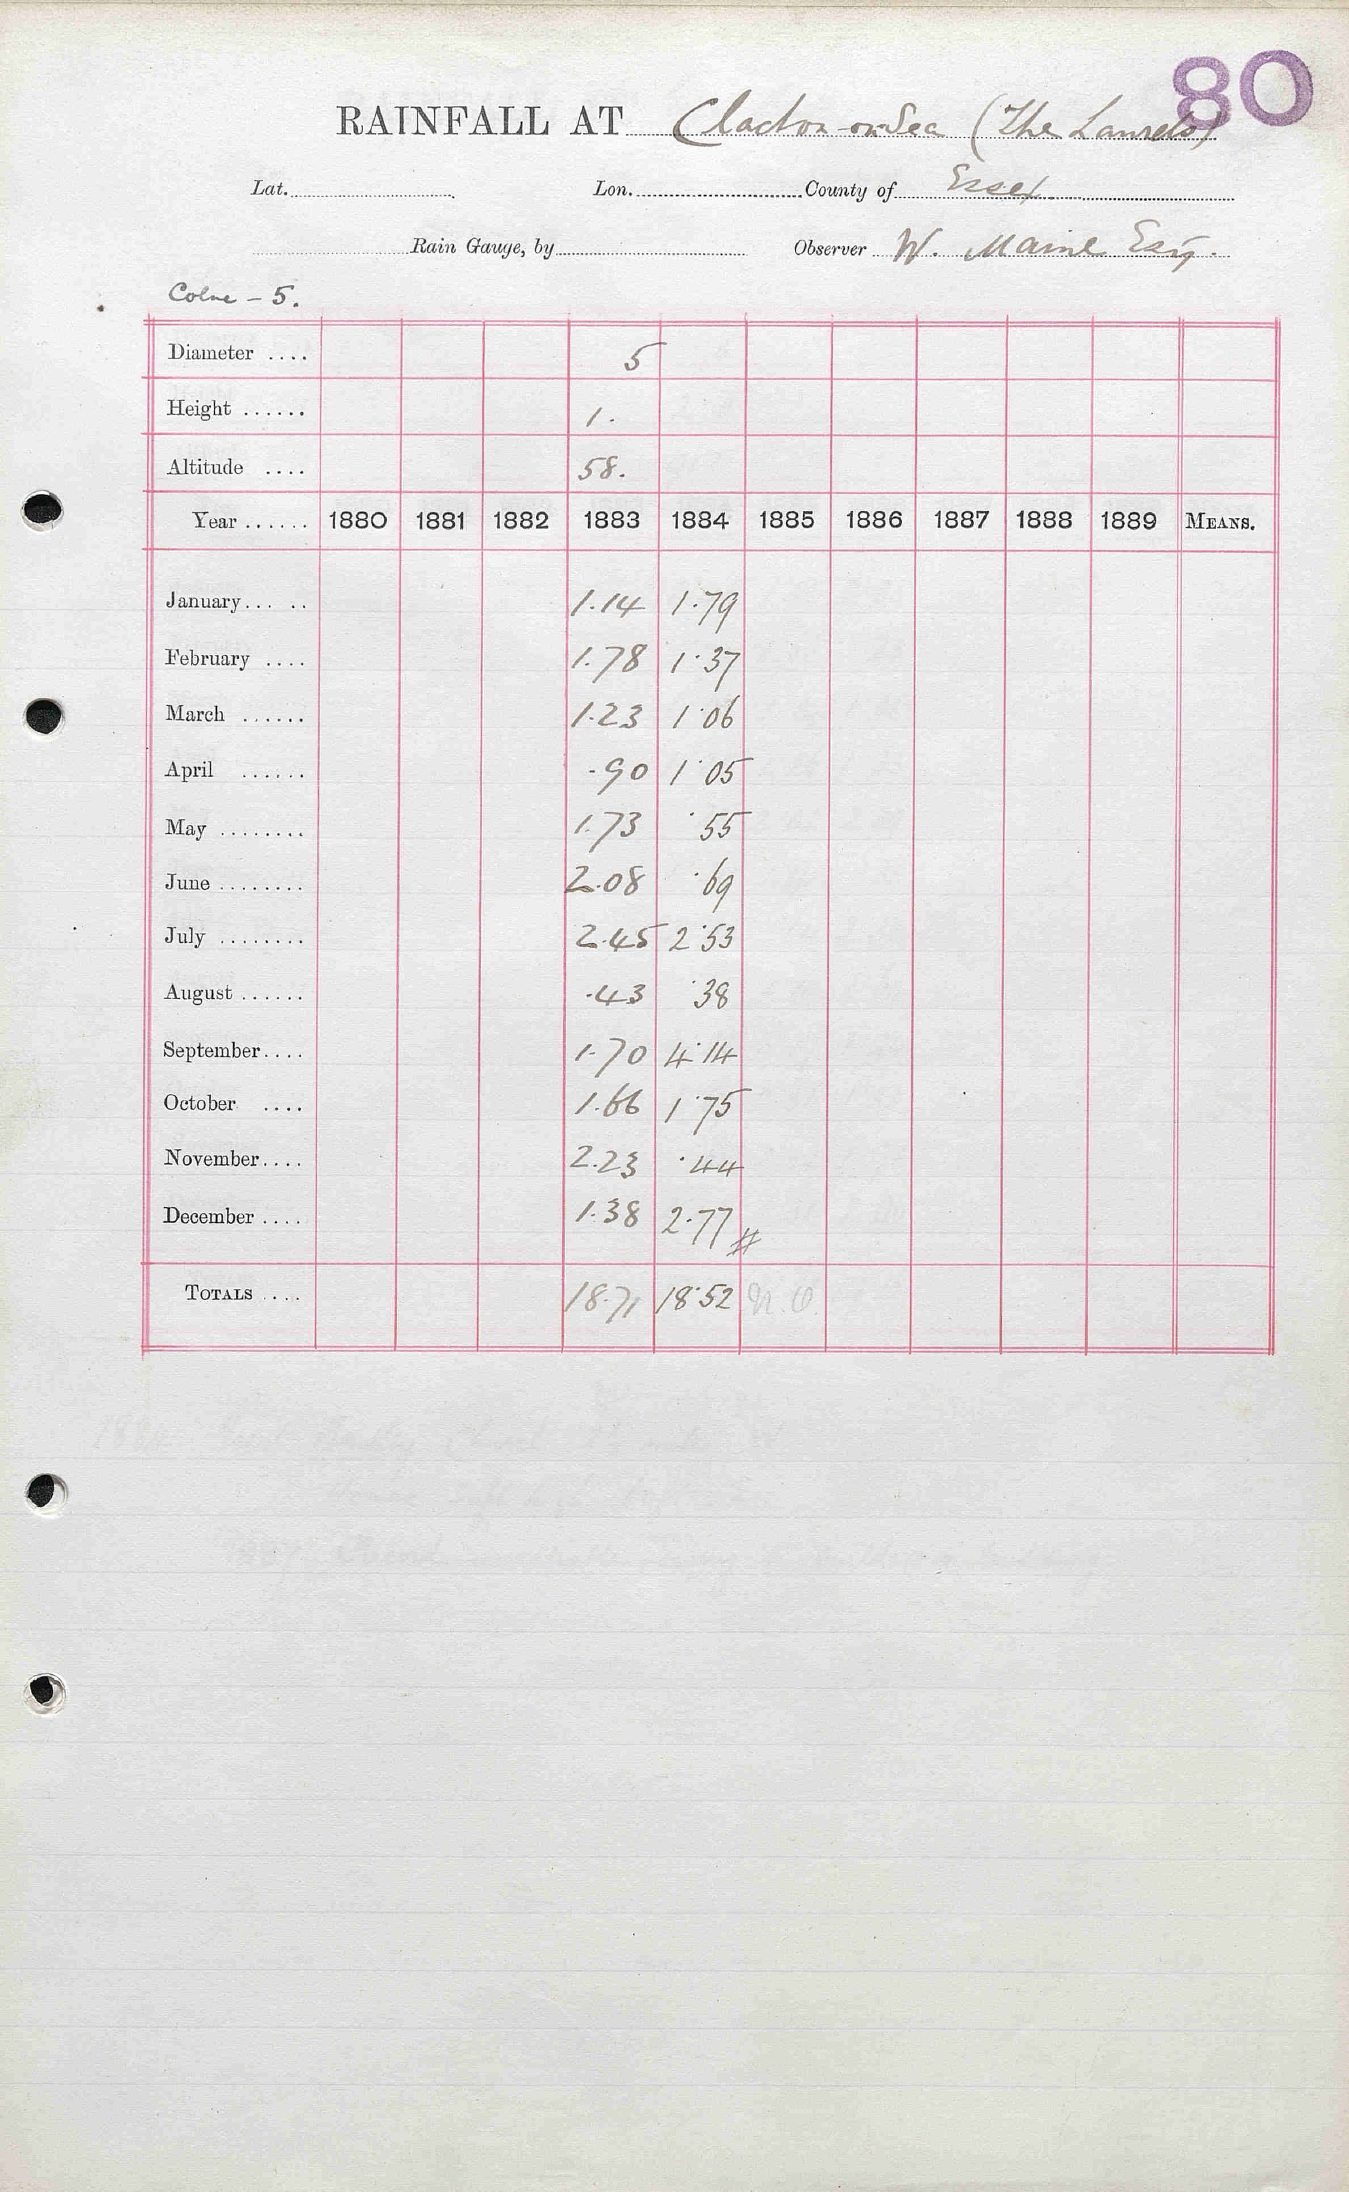 80
RAINFALL AT Clacton-on-Sea (The Laurels)
Lat. Lon. County of Essex.
Rain Gauge, by Observer W. Maine Esq.
Colne - 5.
Diameter .... 5
Height ...... 1.
Altitude .... 58.
Year ...... 1880 1881 1882 1883 1884 1885 1886 1887 1888 1889 MEANS.
January... .. 1.14 1.79
February .... 1.78 1.37
March ...... 1.23 1.06
April ...... .90 1.05
May ........ 1.73 .55
June ........ 2.08 .69
July ........ 2.45 2.53
August ...... .43 .38
September.... 1.70 4.14
October .... 1.66 1.75
November.... 2.23 .44
December .... 1.38 2.77 #
TOTALS .... 18.71 18.52 N.O.